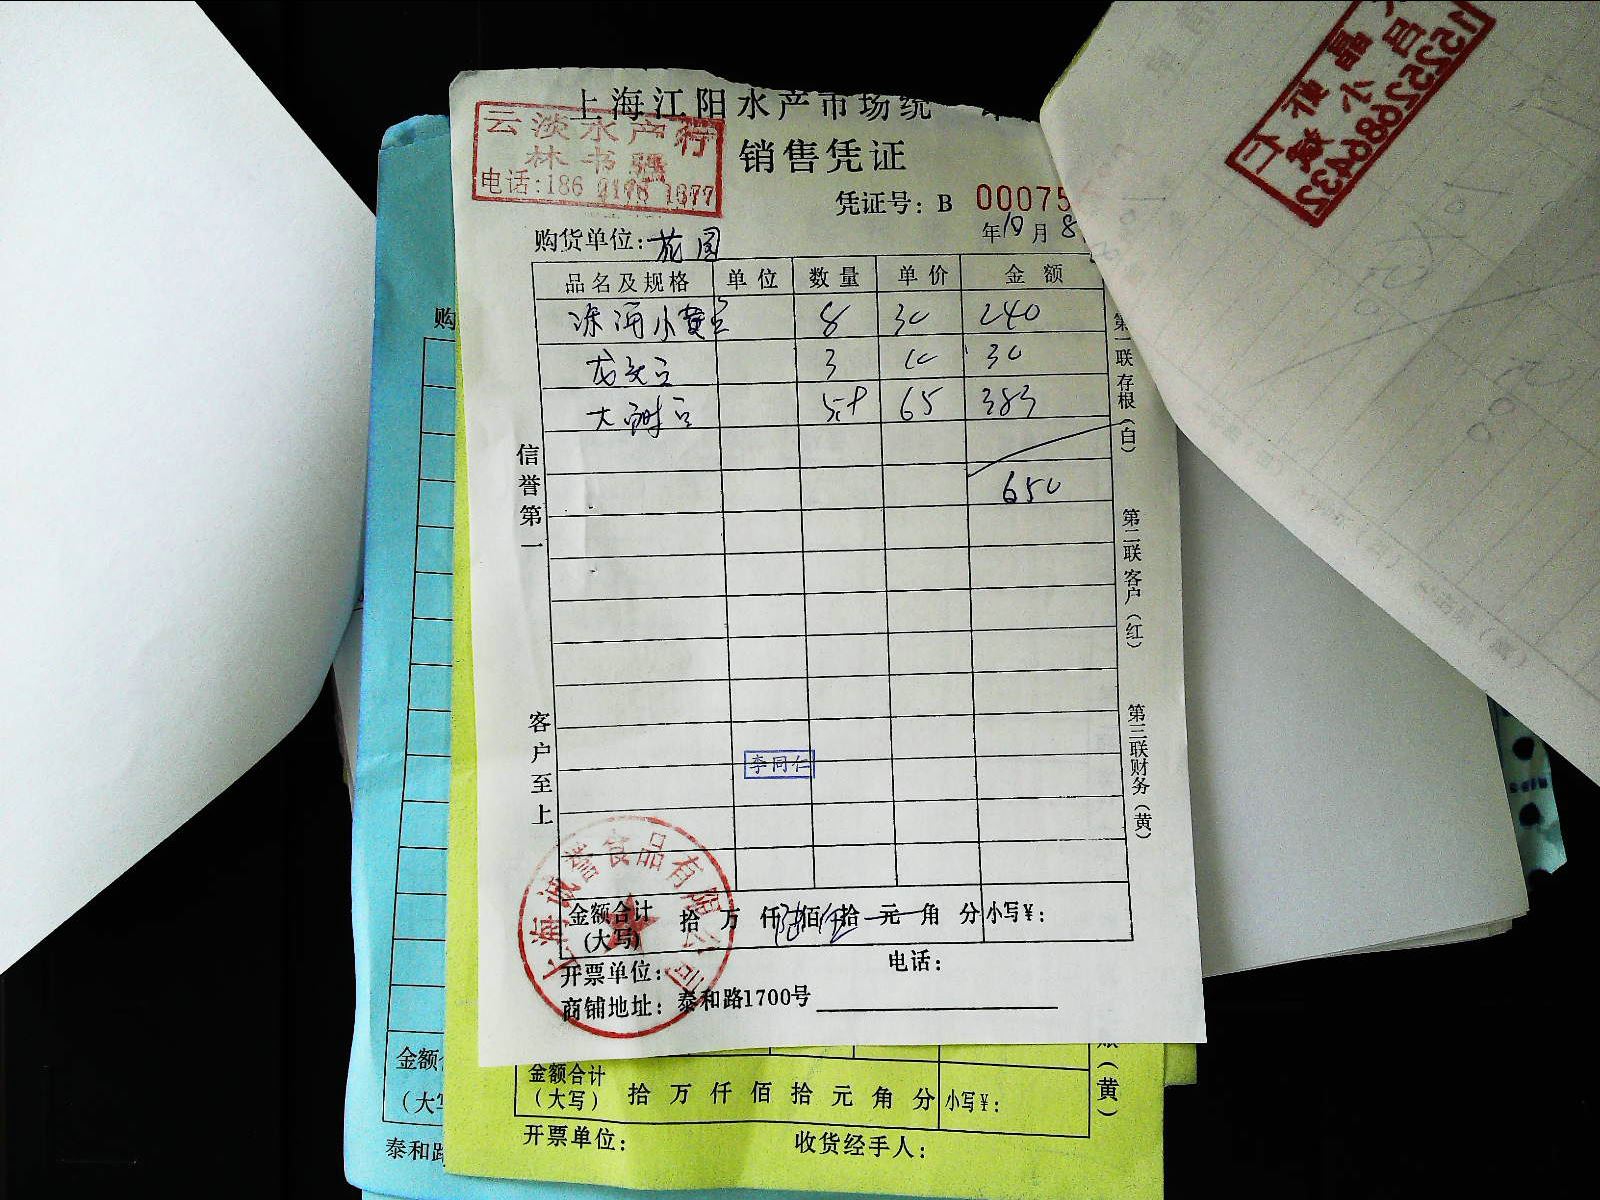 上海江阳水产市场统一
云淡水产行
林书强
电话:186 2178 1677
销售凭证
凭证号: B 00075
年10月8
购货单位:苑园
品名及规格 单位 数量 单价 金额
8 30 240
龙头 3 10 30
大 5.9 65 383
650
信誉第一
客户至上
第一联存根(白)
第二联客户(红)
第三联财务(黄)
李同仁
上海诚誉食品有限公司
金额合计
(大写) 拾 万 仟 佰 拾 元 角 分 小写¥:
开票单位: 电话:
商铺地址: 泰和路1700号
购
金额
(大写
泰和路
金额合计
(大写) 拾 万 仟 佰 拾 元 角 分 小写¥:
开票单位: 收货经手人:
(黄)
15252686432